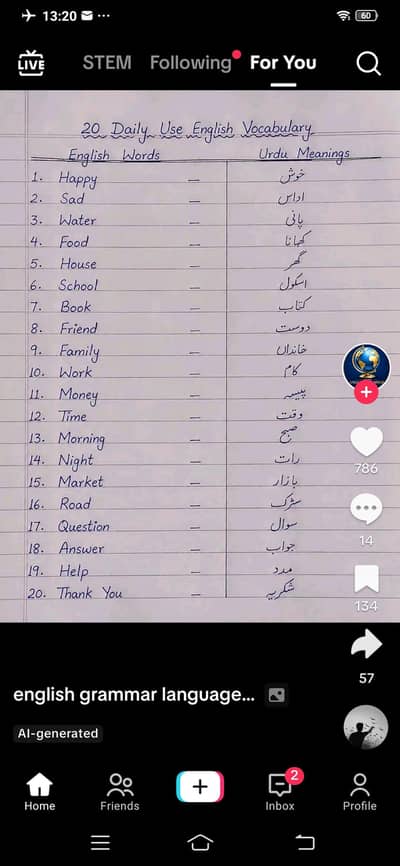 13:20
60
LIVE STEM Following For You
20 Daily Use English Vocabulary
English Words Urdu Meanings
1. Happy — خوش
2. Sad — اداس
3. Water — پانی
4. Food — کھانا
5. House — گھر
6. School — اسکول
7. Book — کتاب
8. Friend — دوست
9. Family — خاندان
10. Work — کام
11. Money — پیسہ
12. Time — وقت
13. Morning — صبح
14. Night — رات
15. Market — بازار
16. Road — سڑک
17. Question — سوال
18. Answer — جواب
19. Help — مدد
20. Thank You — شکریہ
786
14
134
57
english grammar language...
AI-generated
2
Home Friends Inbox Profile